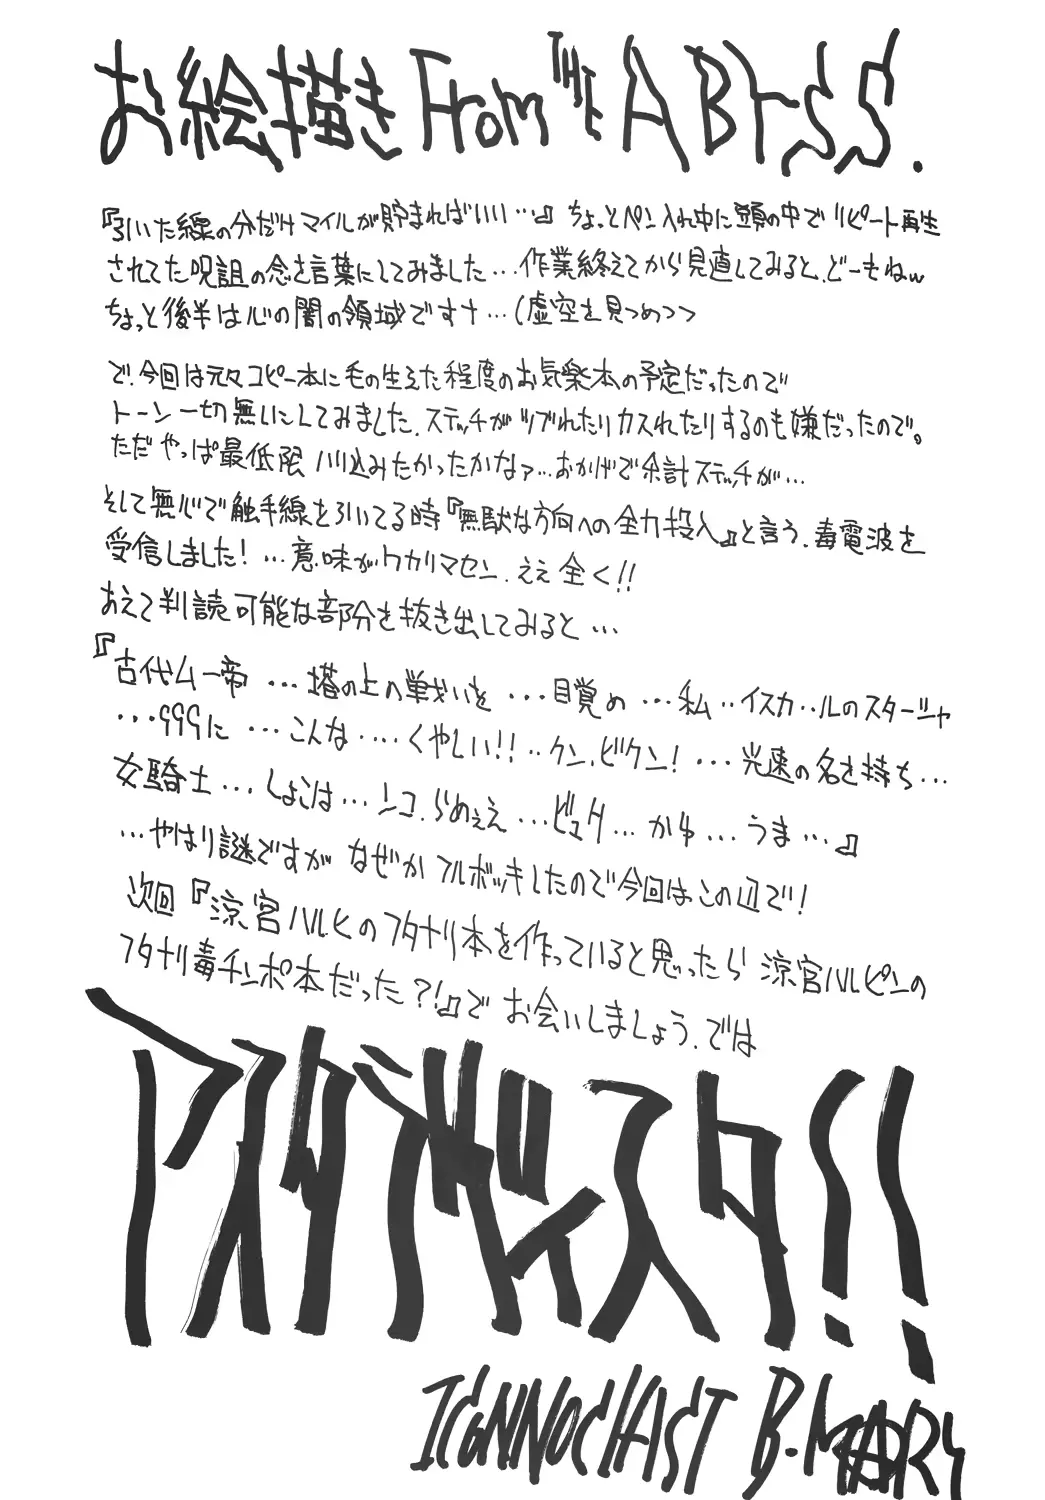 お絵描き From THE ABYSS.
『引いた線の分だけマイルが貯まればいい…』ちょっとペン入れ中に頭の中でリピート再生
されてた呪詛の念を言葉にしてみました…作業終えてから見直してみると、どーもねw
ちょっと後半は心の闇の領域ですナ…(虚空を見つめつつ
で、今回は元々コピー本に毛の生えた程度のお気楽本の予定だったので
トーン一切無しにしてみました、ステッチがツブれたりカスれたりするのも嫌だったので。
ただやっぱ最低限ハリ込みたかったかなァ…おかげで余計ステッチが…
そして無心で触手線を引いてる時『無駄な方向への全力投入』と言う、毒電波を
受信しました!…意味がワカリマセン、ええ全く!!
あえて判読可能な部分を抜き出してみると…
『古代ムー帝…塔の上の戦いを…目覚め…私‥イスカ‥ルのスタージャ
…999に…こんな‥‥くやしい!!‥クン、ビクン!…光速の名を持ち…
女騎士…しょこは…ンコ、らめぇえ…ビュク…かゆ…うま…』
…やはり謎ですが なぜかフルボッキしたので今回はこの辺で!
次回『涼宮ハルヒのフタナリ本を作っていると思ったら涼宮ハルピンの
フタナリ毒チンポ本だった?!』で お会いしましょう、では
アスタラビスタ!!
ICONNOCLAST B.MARY